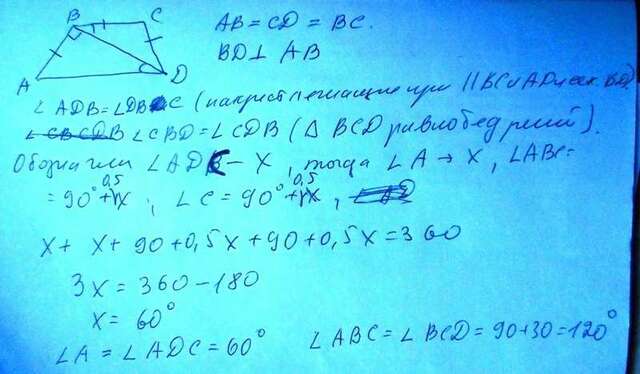 B C
A D
AB = CD = BC.
BD ⊥ AB
∠ ADB = ∠DBC (накрест лежащие при || BC и AD и сек. BD)
∠ CBD = ∠ CDB (△ BCD равнобедренный).
Обозначим ∠ ADC – X, тогда ∠ A → X, ∠ABC =
= 90° + 0,5X, ∠ C = 90° + 0,5X,
X + X + 90 + 0,5X + 90 + 0,5X = 360
3X = 360 – 180
X = 60°
∠A = ∠ ADC = 60°
∠ ABC = ∠ BCD = 90 + 30 = 120°